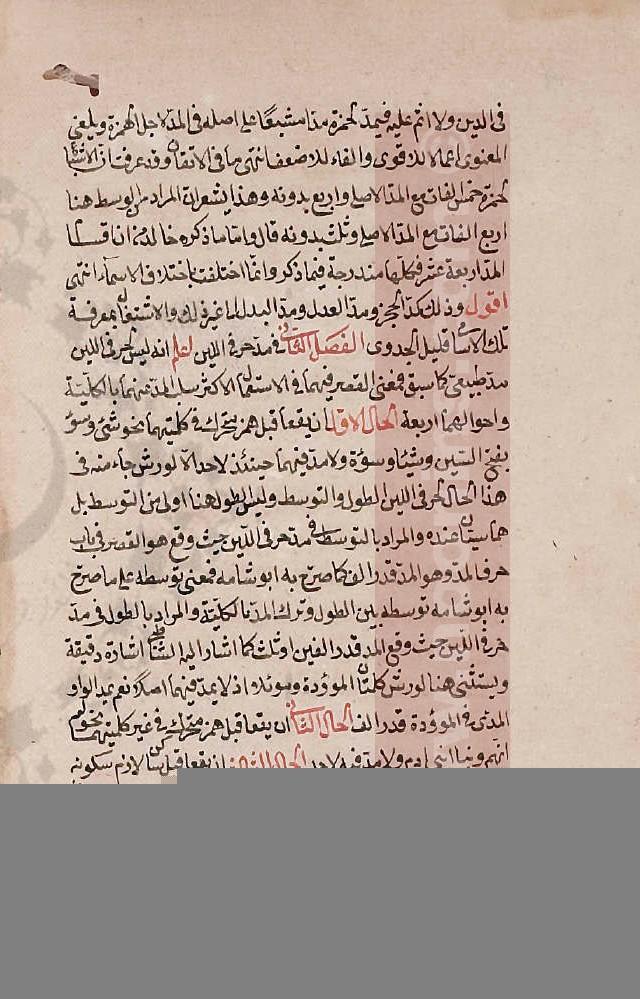 فى الدين ولا اثم عليه فيمد لحمزة مدا مشبعا على اصله فى المد لاجل الهمزة ويلغى
المعنوى اعمالا للاقوى والغاء للاضعف انتهى ما فى الاتقان وقد عرفت ان الاشباع
لحمزة خمس الفات مع المد الاصلى واربع بدونه وهذا يشعر ان المراد من الوسط هنا
اربع الفات مع المد الاصلى وثلث بدونه قال واما ما ذكره خالد من ان اقسام
المد اربعة عشر فكلها مندرجة فيما ذكر وانما اختلفت باختلاف الاسماء انتهى
اقول وذلك كمد الحجز ومد العدل ومد البدل الى غير ذلك والاشتغال بمعرفة
تلك الاسامى قليل الجدوى الفصل الثانى فى مد حرفى اللين اعلم انه ليس لحرفى اللين
مد طبيعى كما سبق فمعنى القصر فيهما فى الاستعمال الاكثر سلب المد عنهما بالكلية
واحوالهما اربعة الحال الاول ان يقعا قبل همز متحرك فى كلمتهما نحو شئ وسوء
بفتح السين وشيئا وسوءة ولا مد فيهما حينئذ لاحد الا لورش جاء منه فى
هذا الحال لحرفى اللين الطول والتوسط وليس الطول هنا اولى من التوسط بل
هما سيان عنده والمراد بالتوسط فى مد حرفى اللين حيث وقع هو القصر فى باب
حرف المد وهو المد قدر الف كما صرح به ابو شامه فمعنى توسطه على ما صرح
به ابو شامه توسطه بين الطول وترك المد بالكلية والمراد بالطول فى مد
حرفى اللين حيث وقع المد قدر الفين او ثلث كما اشار اليه الشاطبى اشارة دقيقة
ويستثنى هنا لورش كلمتان الموؤدة وموئلا اذ لا يمد فيهما اصلا نعم يمد الواو
المدى فى الموؤدة قدر الف الحال الثانى ان يقعا قبل همز متحرك فى غير كلمتهما نحو
ابنى ادم ولا مد فيه لاحد الحال الثالث ان يقعا قبل ساكن لازم سكونه